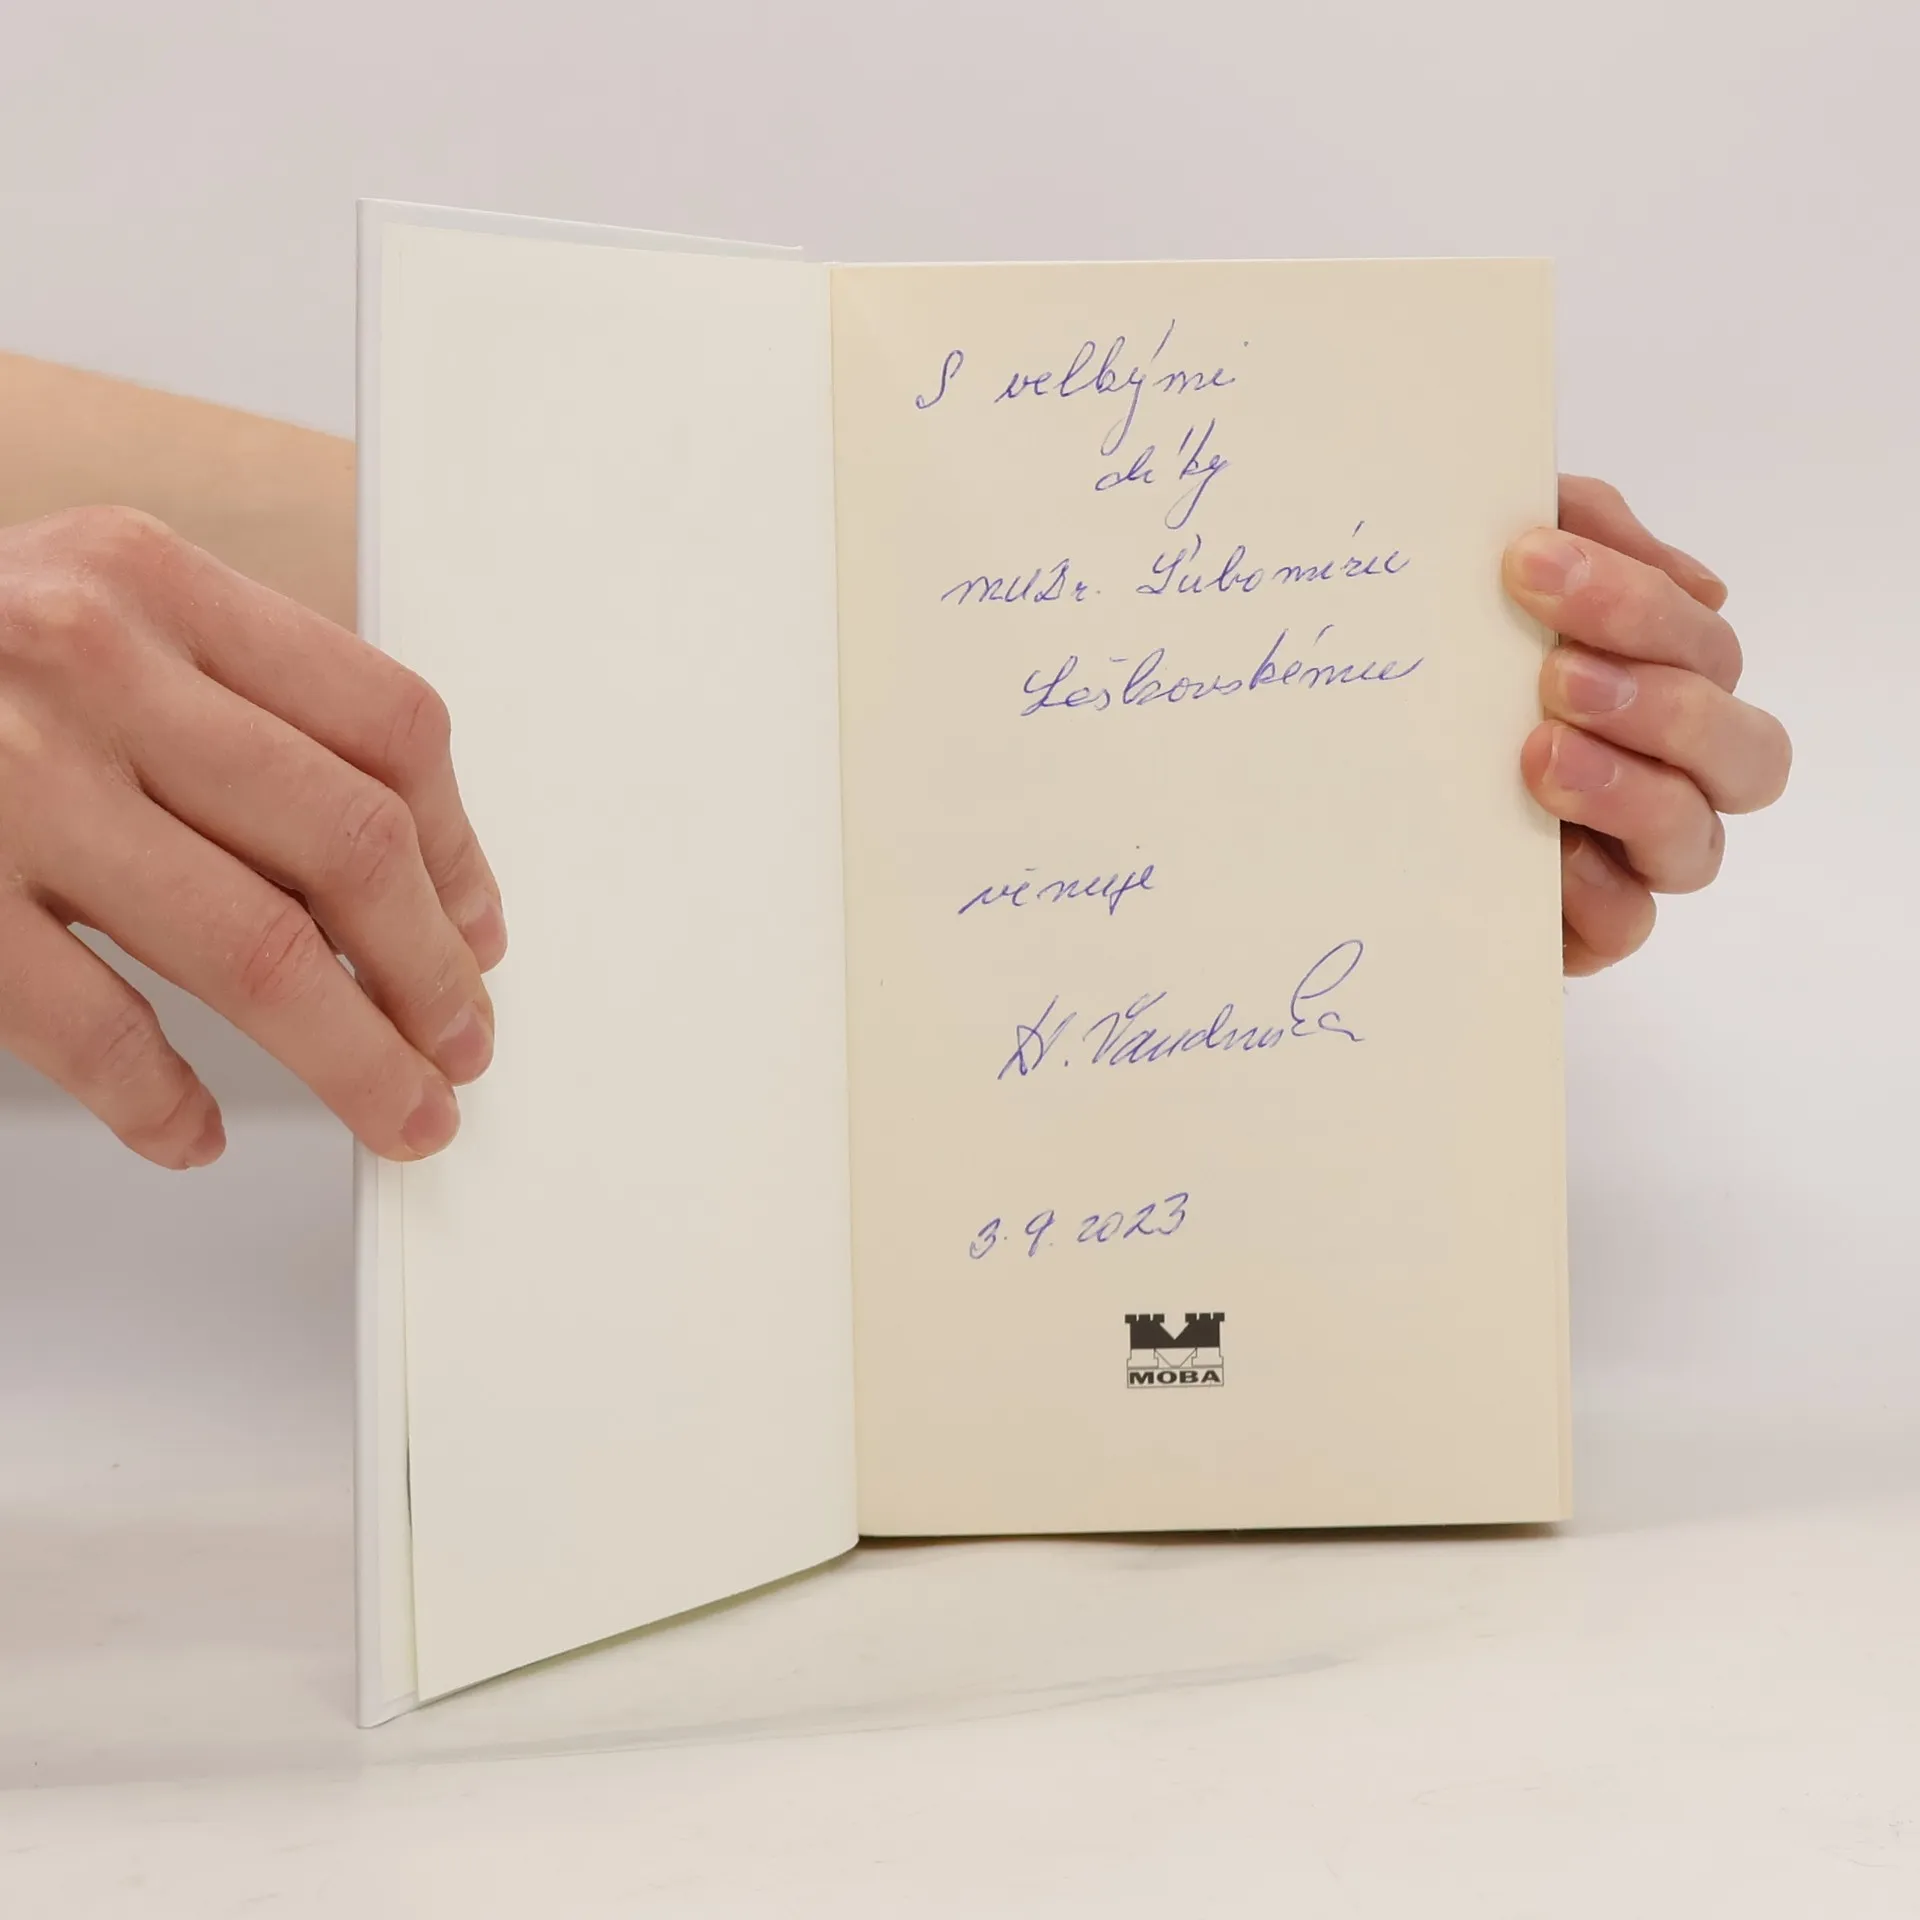 S velkými
díky
MUDr. Ľubomíru
Leškovskému
věnuje
3.9.2023
MOBA